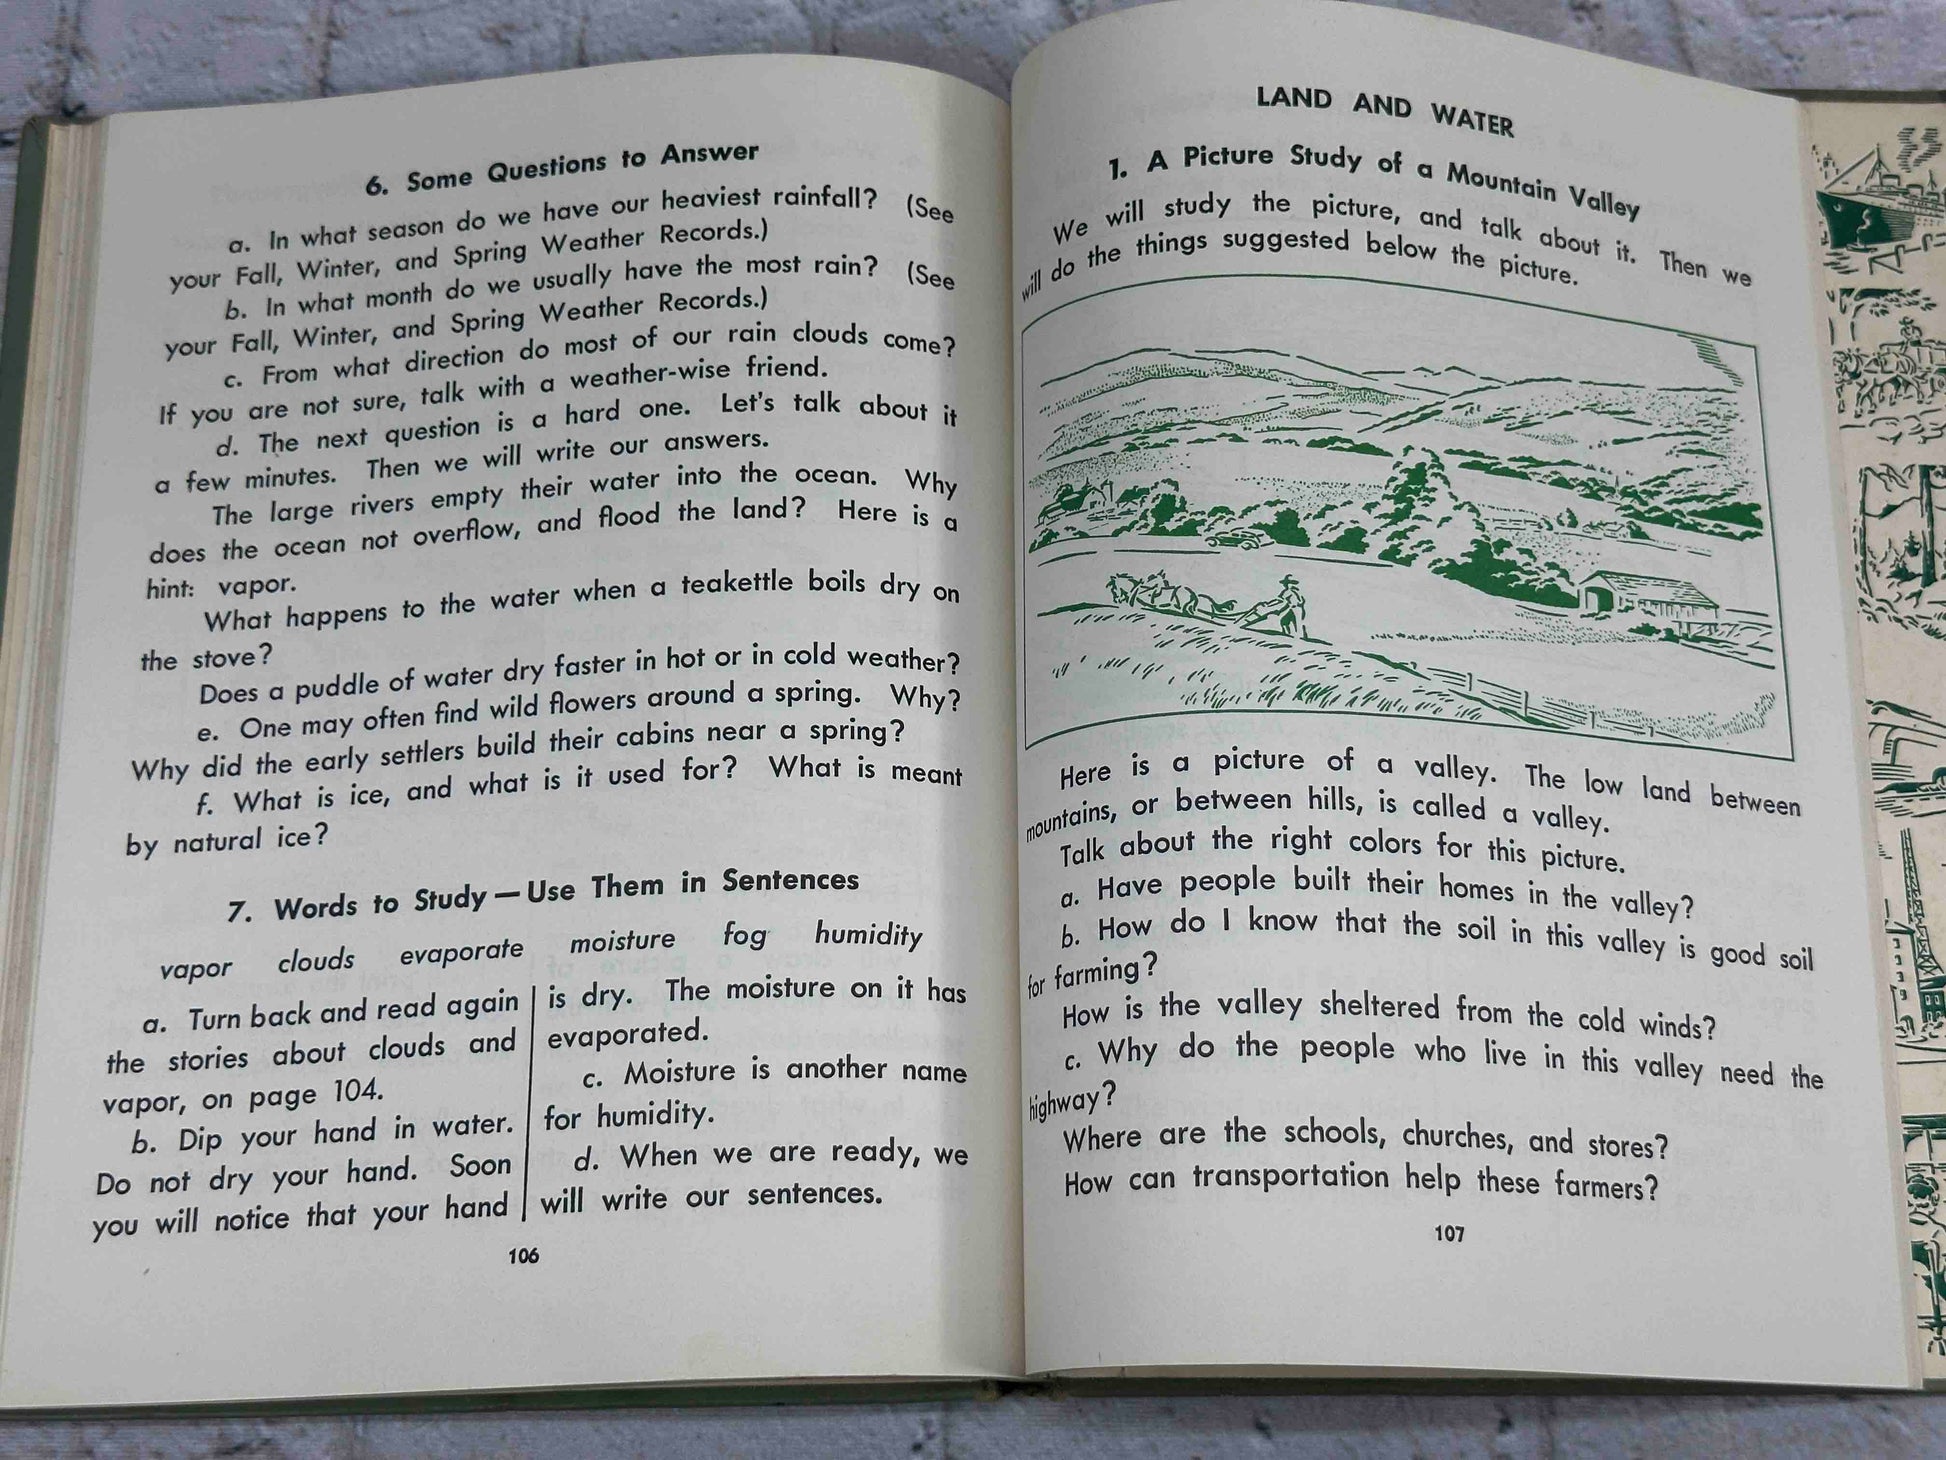 6. Some Questions to Answer
a. In what season do we have our heaviest rainfall? (See
your Fall, Winter, and Spring Weather Records.)
b. In what month do we usually have the most rain? (See
your Fall, Winter, and Spring Weather Records.)
c. From what direction do most of our rain clouds come?
If you are not sure, talk with a weather-wise friend.
d. The next question is a hard one. Let's talk about it
a few minutes. Then we will write our answers.
The large rivers empty their water into the ocean. Why
does the ocean not overflow, and flood the land? Here is a
hint: vapor.
What happens to the water when a teakettle boils dry on
the stove?
Does a puddle of water dry faster in hot or in cold weather?
e. One may often find wild flowers around a spring. Why?
Why did the early settlers build their cabins near a spring?
f. What is ice, and what is it used for? What is meant
by natural ice?
7. Words to Study — Use Them in Sentences
vapor clouds evaporate moisture fog humidity
a. Turn back and read again
the stories about clouds and
vapor, on page 104.
b. Dip your hand in water.
Do not dry your hand. Soon
you will notice that your hand
is dry. The moisture on it has
evaporated.
c. Moisture is another name
for humidity.
d. When we are ready, we
will write our sentences.
106
LAND AND WATER
1. A Picture Study of a Mountain Valley
We will study the picture, and talk about it. Then we
will do the things suggested below the picture.
Here is a picture of a valley. The low land between
mountains, or between hills, is called a valley.
Talk about the right colors for this picture.
a. Have people built their homes in the valley?
b. How do I know that the soil in this valley is good soil
for farming?
How is the valley sheltered from the cold winds?
c. Why do the people who live in this valley need the
highway?
Where are the schools, churches, and stores?
How can transportation help these farmers?
107